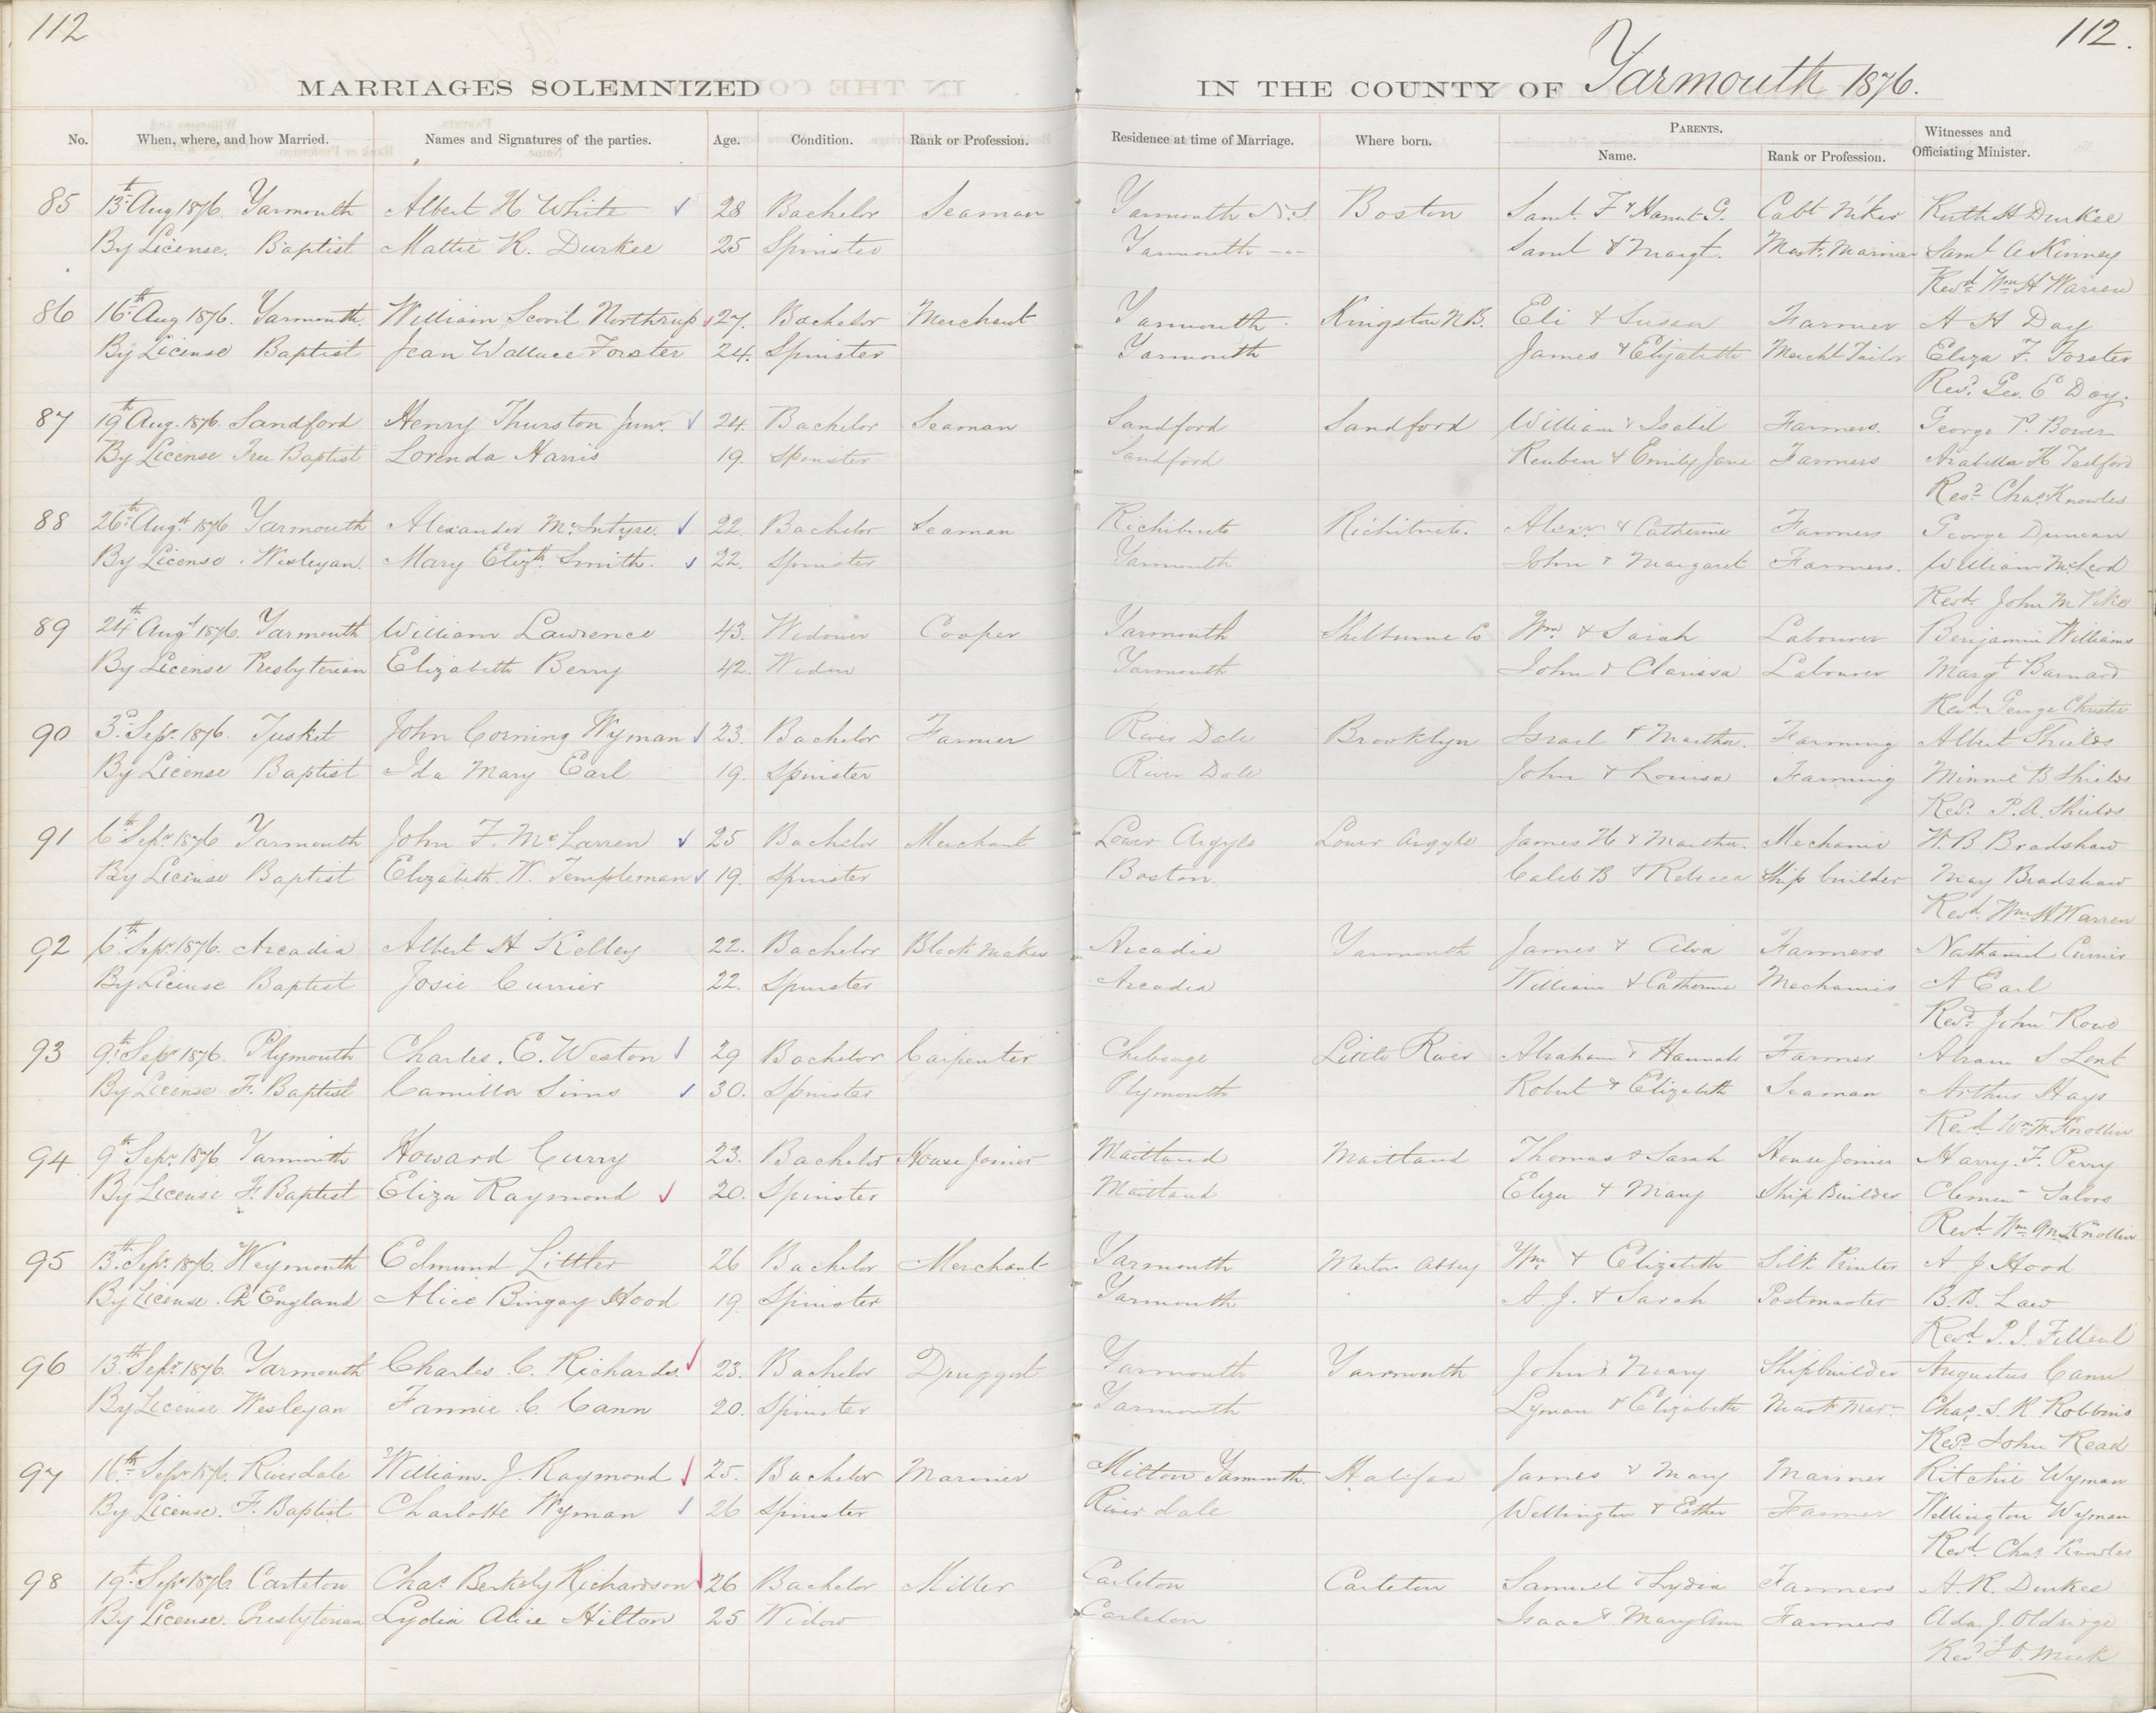 112
112.
MARRIAGES SOLEMNIZED IN THE COUNTY OF Yarmouth 1876.
No. When, where, and how Married. Names and Signatures of the parties. Age. Condition. Rank or Profession. Residence at time of Marriage. Where born. PARENTS. Name. Rank or Profession. Witnesses and Officiating Minister.
85 13th Aug 1876. Yarmouth Albert H White 28 Bachelor Seaman Yarmouth N.S. Boston Saml. F & Hanut G. Cabt Mker Ruth H Durkee
By License. Baptist Mattie K. Durkee 25 Spinster Yarmouth -"- Saml & Margt. Mastr Mariner Saml A Kinney
Revd Wm H Warren
86 16th Aug 1876. Yarmouth. William Scovil Northrup 27. Bachelor Merchant Yarmouth. Kingston N.B. Eli & Susan Farmer A H Day
By License Baptist Jean Wallace Forster 24. Spinster Yarmouth James & Elizabeth Mercht Tailor Eliza F. Forster
Revd. Geo. E Day.
87 19th Aug. 1876. Sandford Henry Thurston Junr. 24. Bachelor Seaman Sandford Sandford William & Isabel Farmers. George P. Bower
By License Free Baptist Lorenda Harris 19. Spinster Sandford Reuben & Emily Jane Farmers Arabella H Tedford
Revd Chas Knowles
88 26th Augst 1876 Yarmouth Alexander McIntyre. 22. Bachelor Seaman Richibucto Richibucto. Alexr. & Catherine Farmers George Duncan
By License. Wesleyan. Mary Elizth. Smith. 22. Spinster Yarmouth John & Margaret Farmers. William McLeod
Revd. John M Pike
89 24th Augt 1876. Yarmouth William Lawrence 43. Widower Cooper Yarmouth Shelburne Co Wm. & Sarah Labourer Benjamin Williams
By License Presbyterian Elizabeth Berry 42. Widow Yarmouth John & Clarissa Labourer Margt Barnard
Revd. George Christie
90 3d Sepr. 1876. Tusket John Corning Wyman 23. Bachelor Farmer River Dale Brooklyn Israel & Martha. Farming Albert Shields
By License Baptist Ida Mary Earl 19. Spinster River Dale John & Louisa Farming Minnie B Shields
Revd. P.A. Shields
91 6th Sepr 1876 Yarmouth John F. McLarren 25 Bachelor Merchant Lower Argyle Lower Argyle James H & Martha. Mechanic W.B Bradshaw
By License Baptist Elizabeth. W. Templeman 19. Spinster Boston. Caleb B & Rebecca Ship builder May Bradshaw
Revd. Wm H Warren
92 6th Sepr 1876. Arcadia Albert H Kelley 22. Bachelor Block Maker Arcadia Yarmouth James & Alva Farmers Nathaniel Currier
By License Baptist Josie Currier 22. Spinster Arcadia William & Catherine Mechanics A Earl
Revd. John Rowe
93 9th Sepr 1876. Plymouth Charles. E. Weston 29 Bachelor Carpenter Chebogue Little River Abraham & Hannah Farmer Abram S Lent
By License F. Baptist Camilla Sims 30. Spinster Plymouth Robert & Elizabeth Seaman Arthur Hays
Revd. Wm M Knollin
94 9th Sepr. 1876 Yarmouth Howard Curry 23. Bachelor House Joiner Maitland Maitland Thomas & Sarah House Joiner Harry. F. Perry
By License F. Baptist Eliza Raymond 20. Spinster Maitland Eliza & Mary Ship Builder
Revd. Wm M Knollin
95 13th Sepr. 1876. Weymouth Edmund Littler 26 Bachelor Merchant Yarmouth Merton Abbey Wm. & Elizabeth Silk Printer A. J Hood
By License. Ch England Alice Bingay Hood 19. Spinster Yarmouth A J. & Sarah Postmaster B.B. Law
Revd. P.J. Filleul
96 13th Sepr 1876. Yarmouth Charles. C. Richards. 23. Bachelor Druggist Yarmouth Yarmouth John & Mary Shipbuilder Augustus Cann
By License Wesleyan Fannie. C. Cann 20. Spinster Yarmouth Lyman & Elizabeth Mastr Marr Chas. S. K. Robbins
Revd. John Read
97 16th Sepr 1876. Riverdale William. J. Raymond 25. Bachelor Mariner Milton Yarmouth. Halifax James & Mary Mariner Ritchie Wyman
By License. F. Baptist Charlotte Wyman 26 Spinster River dale Wellington & Esther Farmer Wellington Wyman
Revd. Chas. Knowles
98 19th Sepr 1876. Carleton Chas. Berkely Richardson 26 Bachelor Miller Carleton Carleton Samuel & Lydia Farmers A.K. Durkee
By License. Presbyterian Lydia Alice Hilton 25 Widow Carleton Isaac & Mary Ann Farmers Ada. J. Oldrige
Revd J.D. Meek